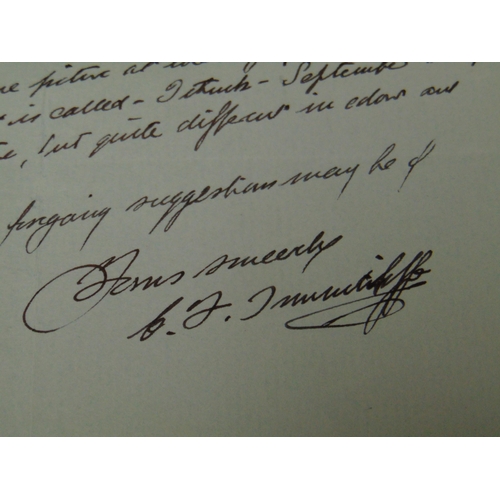 picture at
is called - I think - September
, but quite different in colour and
foregoing suggestions may be of
Yours sincerely
C. F. Tunnicliffe